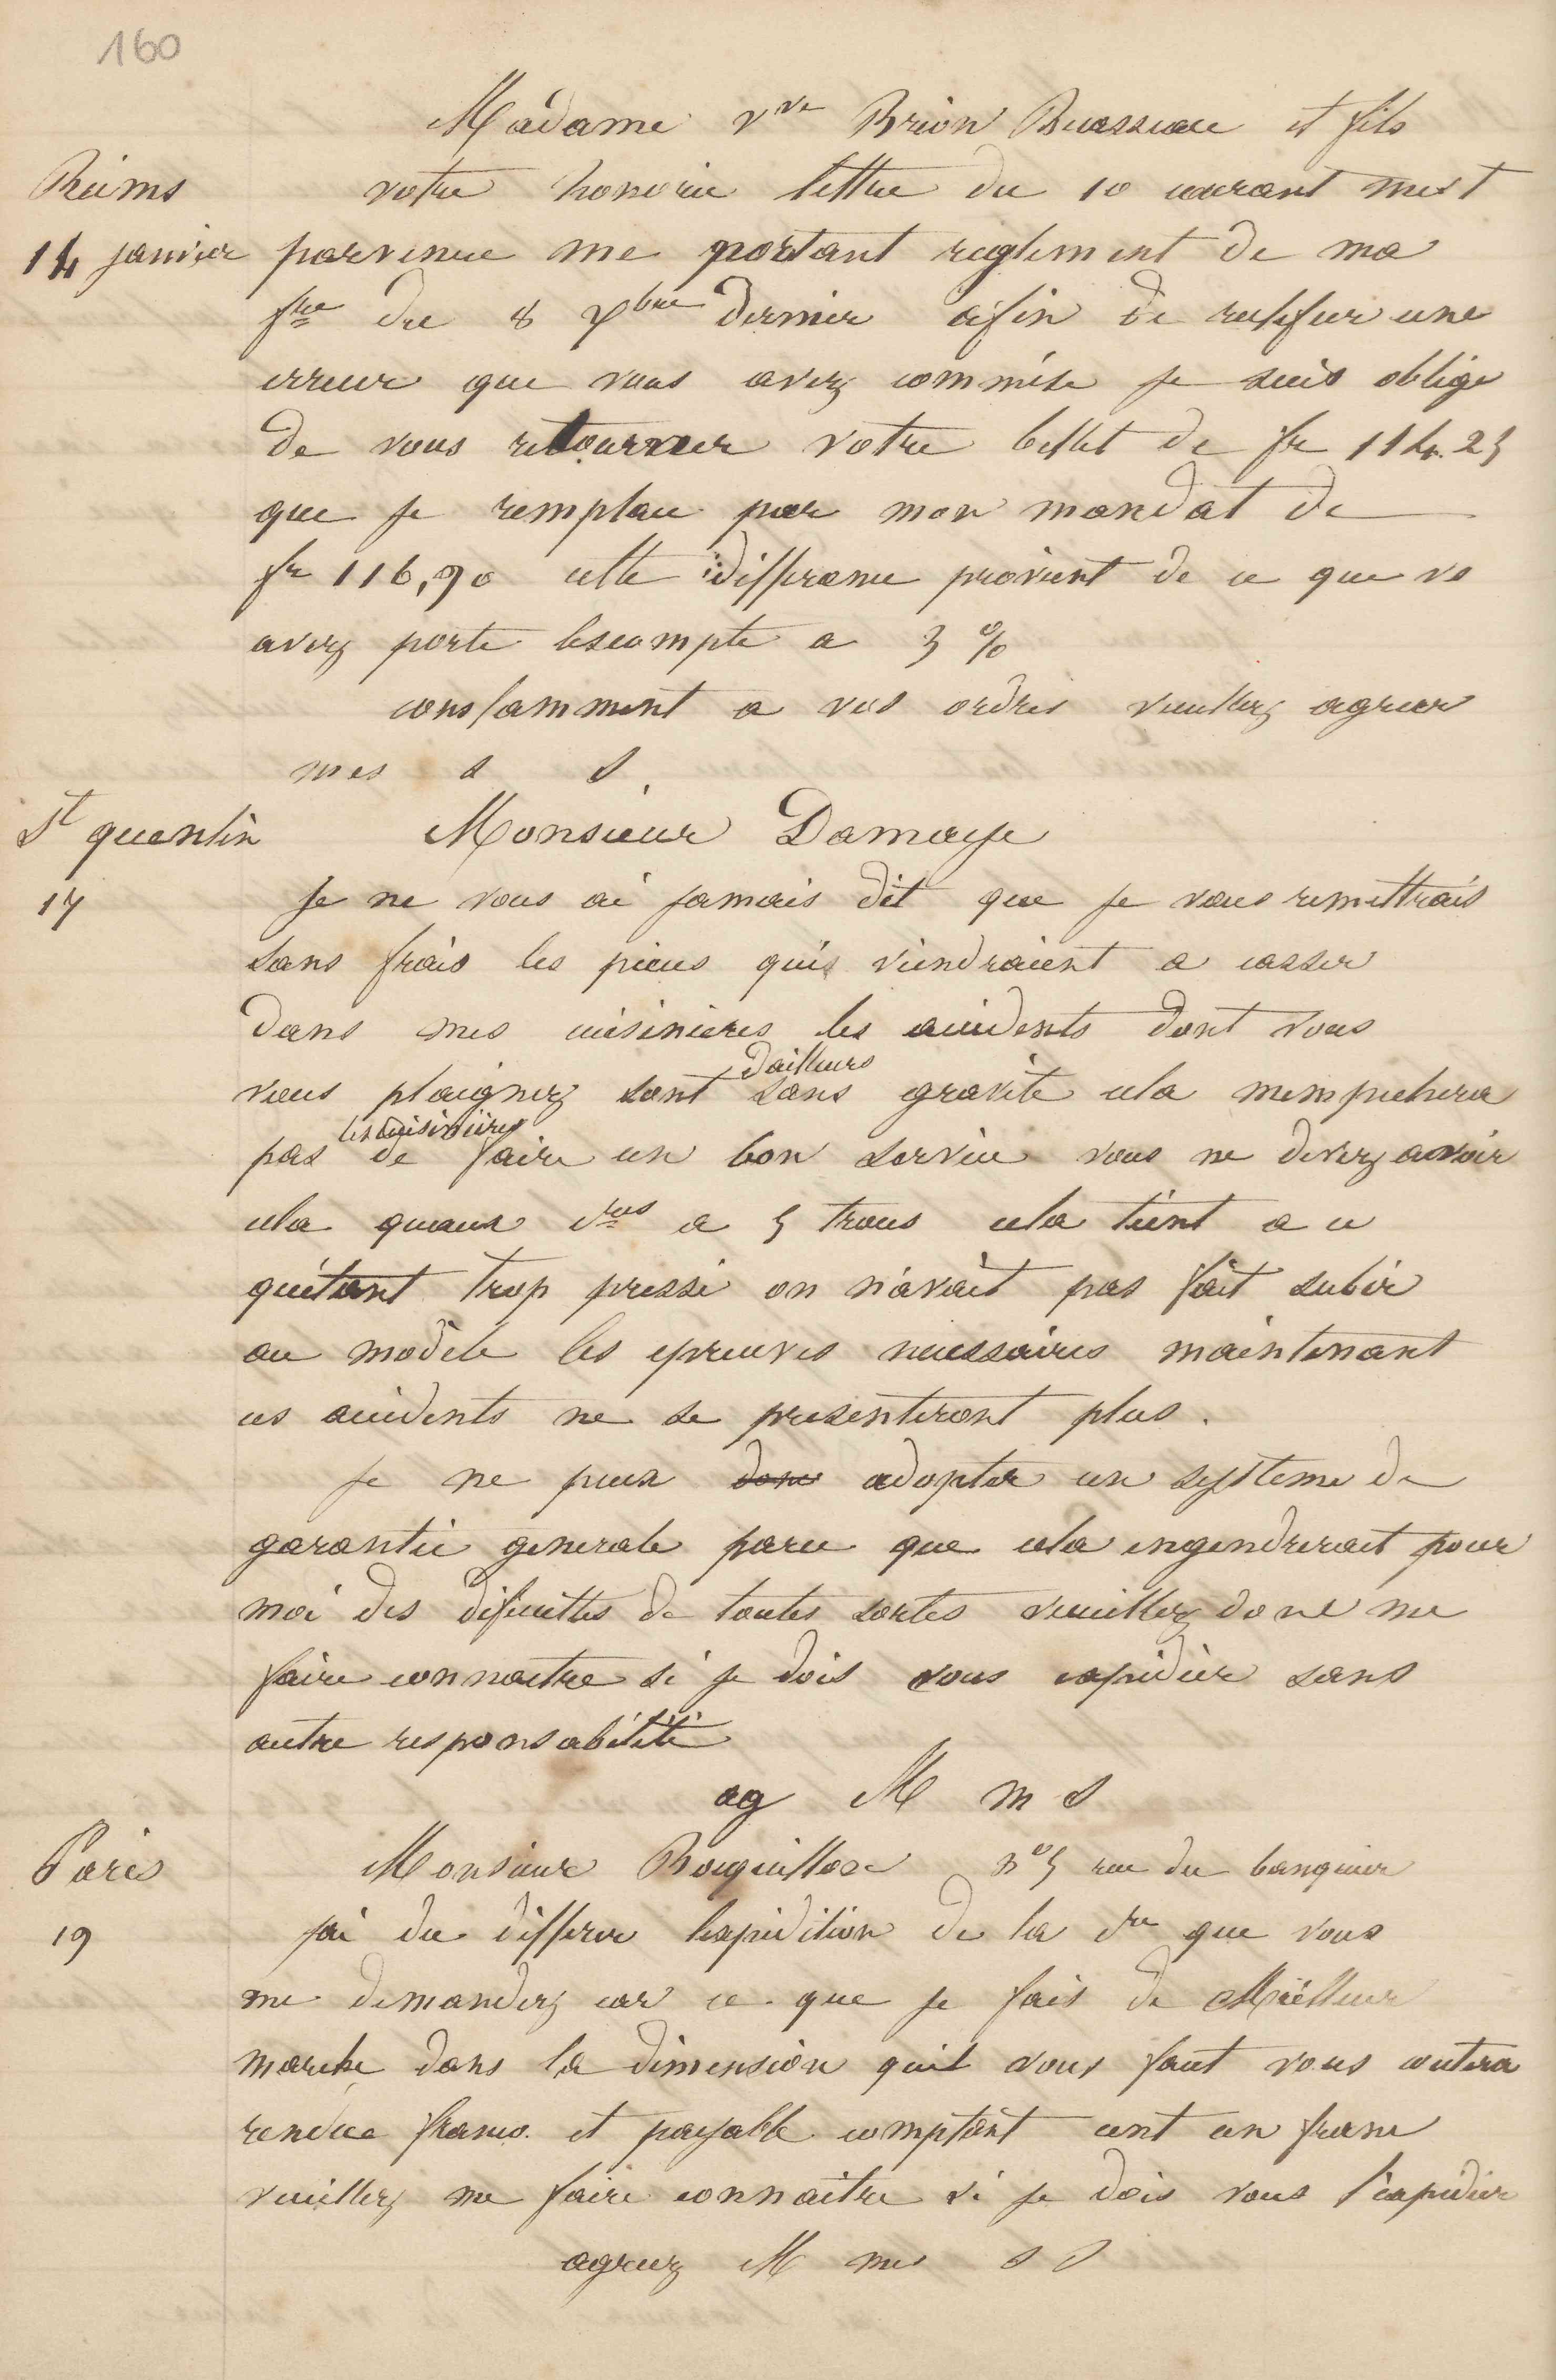 160
Madame Vve Brion Buasseau et fils
Reims
votre honorée lettre du 10 courant mest
14 janvier
parvenue me portant reglement de ma
fre du 8 Xbre dernier afin de
une
erreur que vous avez commise je suis obligé
de vous retourner votre billet de fr 114.25
que je remplace par mon mandat de
fr 116,90 cette difference provient de ce que vs
avez porte lescompte a 3 %
constamment a vos ordres veuillez agreer
mes s s
St quentin
Monsieur Damaye
17
Je ne vous ai jamais dit que je vous remettrais
sans frais les pieces qui viendraient a casser
dans mes cuisinieres les accidents dont vous
vous plaignez sont dailleurs sans gravité cela nempechera
pas les cuisinieres de faire un bon service vous ne devez avoir
cela quaux cres a 5 trous cela tient a ce
qu'étant trop pressé on n'avait pas fait subir
au modele les epreuves necessaires maintenant
ces accidents ne se presenteront plus.
Je ne peux donc adopter un systeme de
garantie generale parce que cela engendrerait pour
moi des dificultes de toutes sortes veuillez donc me
faire connaitre si je dois vous expedier sans
autre responsabilité
ag M m s
Paris
Monsieur Bouquillon n° 5 rue du banquier
19
jai du differer lexpedition de la cre que vous
me demandez car ce que je fais de Meilleur
marche dans la dimension quil vous faut vous coutera
rendue franco et payable comptant cent un franc
veuillez me faire connaitre si je dois vous l'expedier
agreez M mes s s